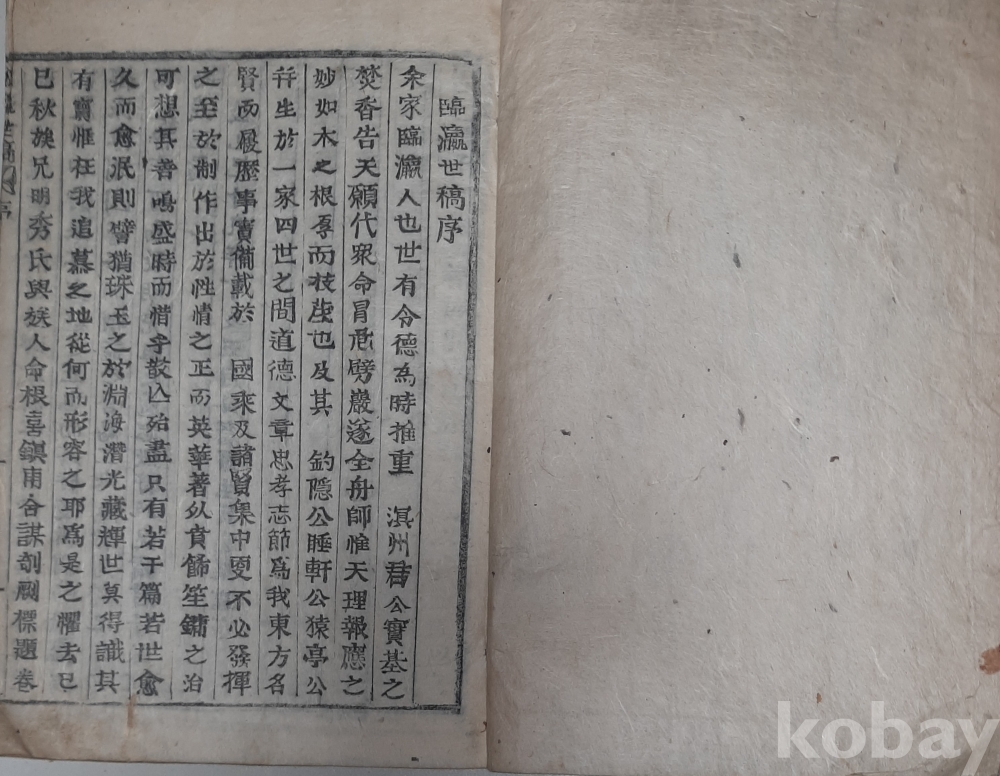 臨瀛世稿序
余家臨瀛人也世有令德為時推重 溟州君公實基之
焚香告天願代衆命冒危劈巖遂全舟師惟天理報應之
妙如木之根厚而枝茂也及其 釣隱公睡軒公猿亭公
幷生於一家四世之間道德文章忠孝志節為我東方名
賢而履歷事實備載於 國乘及諸賢集中更不必發揮
之至於制作出於性情之正而英華著外賁飾笙鏞之治
可想其善鳴盛時而惜乎散亾殆盡只有若干篇若世愈
久而愈泯則譬猶珠玉之於淵海潛光藏輝世莫得識其
有寶惟在我追慕之地從何而形容之耶爲是之懼去己
巳秋族兄明秀氏與族人命根喜鎭甫合謀剞劂標題卷
序
kobay